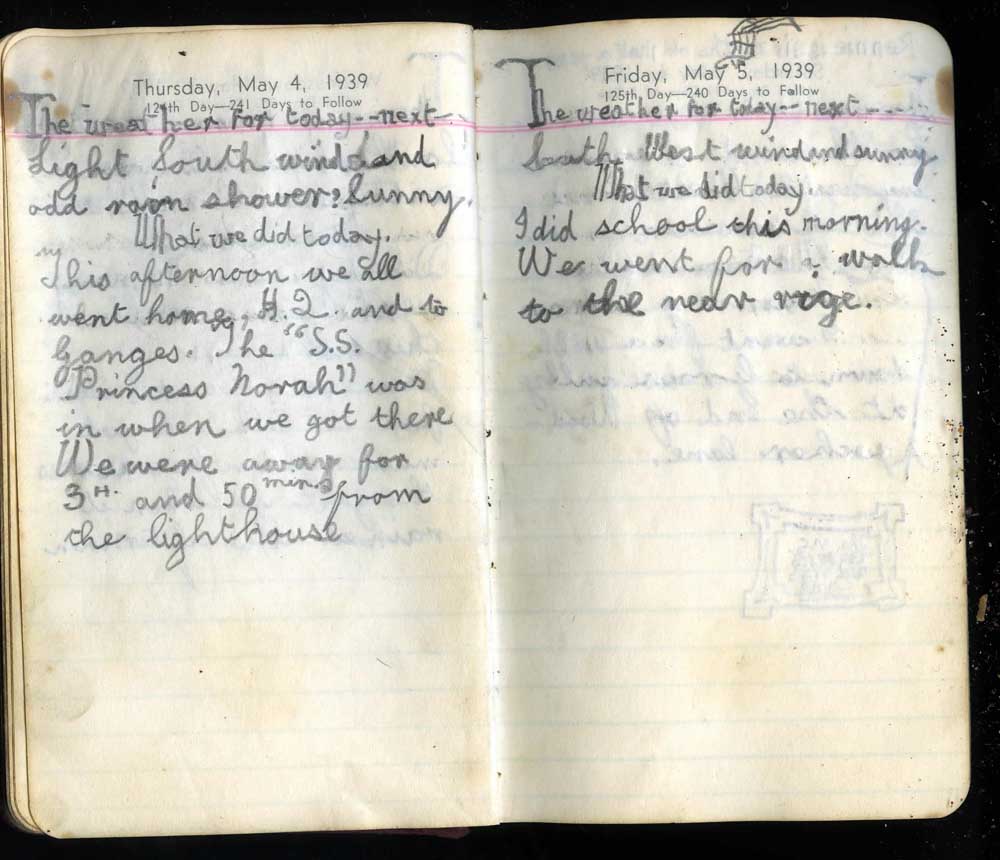 Thursday, May 4, 1939
124th Day—241 Days to Follow
The weather for today--next-
Light South wind and
odd rain shower? Sunny.
What we did today.
This afternoon we all
went home, H.Q. and to
Ganges. The "S.S.
Princess Norah" was
in when we got there
We were away for
3 H. and 50 min.s from
the lighthouse
Friday, May 5, 1939
125th Day—240 Days to Follow
The weather for today--next----
South West wind and sunny
What we did today.
I did school this morning.
We went for a walk
to the near